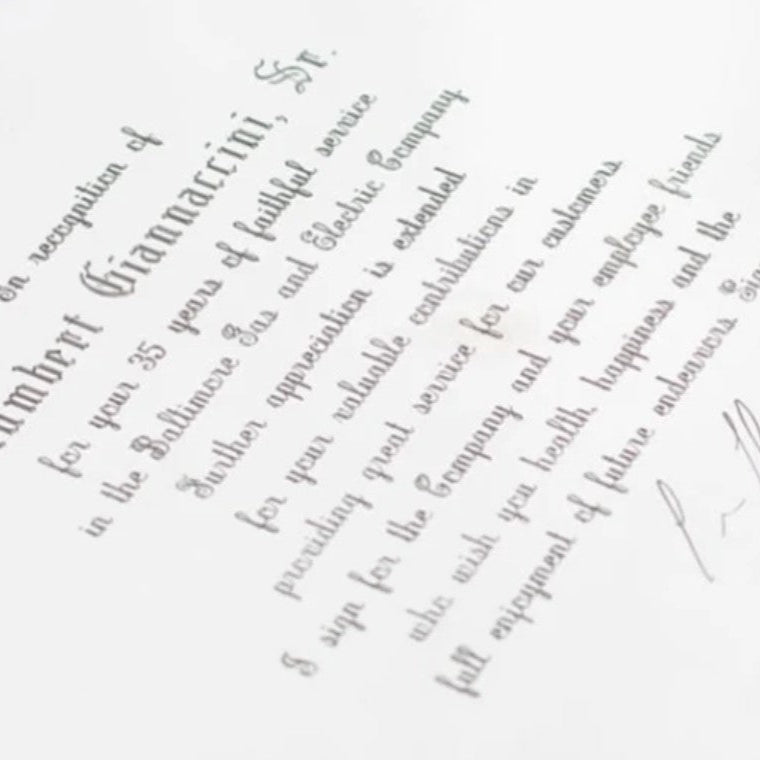 In recognition of
Giannaccini, Sr.
for your 35 years of faithful service
in the Baltimore Gas and Electric Company
Further appreciation is extended
for your valuable contributions in
providing great service for our customers.
I sign for the Company and your employee friends
who wish you health, happiness and the
full enjoyment of future endeavors